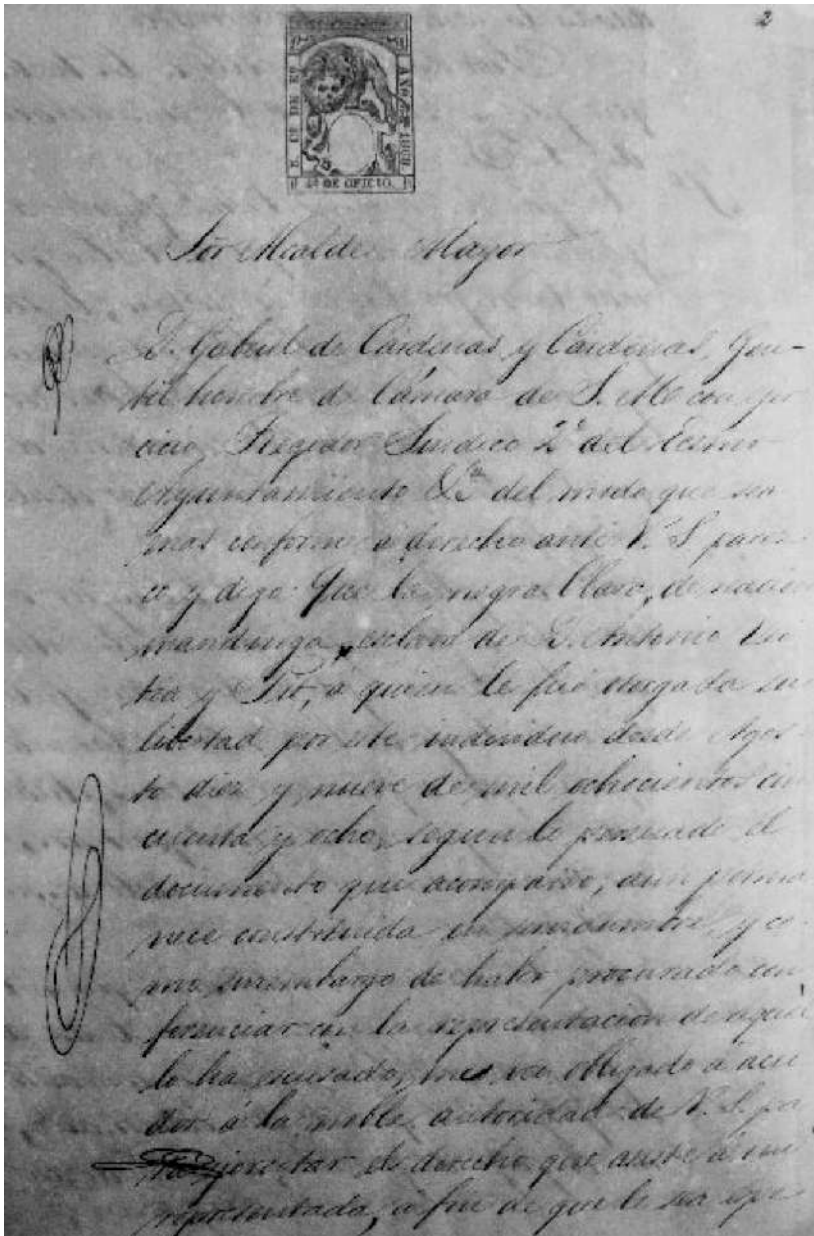 2
AÑOS DE 1868
S. 4º DE OFICIO.
Sor Alcalde Mayor
D. Gabriel de Cárdenas y Cárdenas, Gen-
til hombre de Cámara de S. M. con ejer
cicio, Regidor Sindico 2º del Escmo
Ayuntamiento &ª del modo que sea
mas conforme á derecho ante V. S. parez-
co y digo: Que la negra Clara, de nacion
mandinga, esclava de D. Antonio
y á quien le fué otorgada su
libertad por este individuo desde Agos-
to diez y nueve de mil ochocientos cin
cuenta y ocho, segun lo persuade el
documento que acompaño, aun perma
nece constituida en servidumbre, y co-
mo sinembargo de haber procurado con
ferenciar con la representacion de aquel
lo ha escusado, me veo obligado á acu
dir á la noble autoridad de V. S. pa
ra ejercitar el derecho que asiste á mi
representada, á fin de que le sea